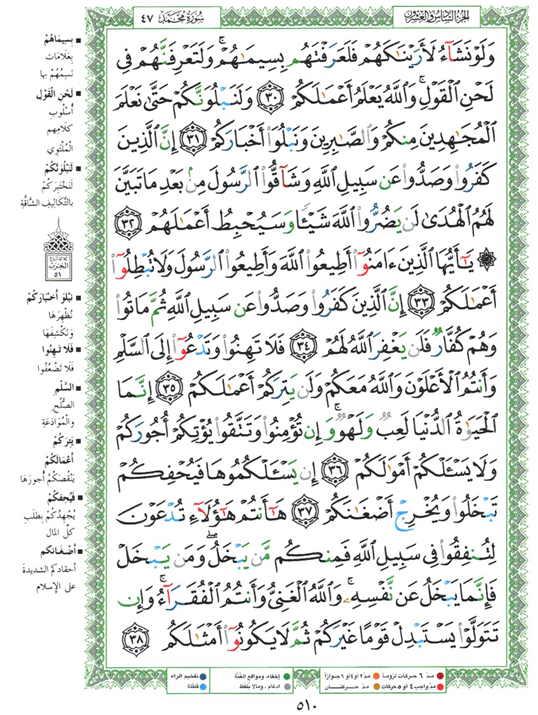 سُورَةُ مُحَمَّد ٤٧
الجُزءُ السَّادِسُ وَالعِشْرُونَ
وَلَوْ نَشَآءُ لَأَرَيْنَٰكَهُمْ فَلَعَرَفْتَهُم بِسِيمَٰهُمْ ۚ وَلَتَعْرِفَنَّهُمْ فِى
لَحْنِ ٱلْقَوْلِ ۚ وَٱللَّهُ يَعْلَمُ أَعْمَٰلَكُمْ ٣٠ وَلَنَبْلُوَنَّكُمْ حَتَّىٰ نَعْلَمَ
ٱلْمُجَٰهِدِينَ مِنكُمْ وَٱلصَّٰبِرِينَ وَنَبْلُوَا۟ أَخْبَارَكُمْ ٣١ إِنَّ ٱلَّذِينَ
كَفَرُوا۟ وَصَدُّوا۟ عَن سَبِيلِ ٱللَّهِ وَشَآقُّوا۟ ٱلرَّسُولَ مِنۢ بَعْدِ مَا تَبَيَّنَ
لَهُمُ ٱلْهُدَىٰ لَن يَضُرُّوا۟ ٱللَّهَ شَيْـًٔا وَسَيُحْبِطُ أَعْمَٰلَهُمْ ٣٢
۞ يَٰٓأَيُّهَا ٱلَّذِينَ ءَامَنُوٓا۟ أَطِيعُوا۟ ٱللَّهَ وَأَطِيعُوا۟ ٱلرَّسُولَ وَلَا تُبْطِلُوٓا۟
أَعْمَٰلَكُمْ ٣٣ إِنَّ ٱلَّذِينَ كَفَرُوا۟ وَصَدُّوا۟ عَن سَبِيلِ ٱللَّهِ ثُمَّ مَاتُوا۟
وَهُمْ كُفَّارٌ فَلَن يَغْفِرَ ٱللَّهُ لَهُمْ ٣٤ فَلَا تَهِنُوا۟ وَتَدْعُوٓا۟ إِلَى ٱلسَّلْمِ
وَأَنتُمُ ٱلْأَعْلَوْنَ وَٱللَّهُ مَعَكُمْ وَلَن يَتِرَكُمْ أَعْمَٰلَكُمْ ٣٥ إِنَّمَا
ٱلْحَيَوٰةُ ٱلدُّنْيَا لَعِبٌ وَلَهْوٌ ۚ وَإِن تُؤْمِنُوا۟ وَتَتَّقُوا۟ يُؤْتِكُمْ أُجُورَكُمْ
وَلَا يَسْـَٔلْكُمْ أَمْوَٰلَكُمْ ٣٦ إِن يَسْـَٔلْكُمُوهَا فَيُحْفِكُمْ
تَبْخَلُوا۟ وَيُخْرِجْ أَضْغَٰنَكُمْ ٣٧ هَٰٓأَنتُمْ هَٰٓؤُلَآءِ تُدْعَوْنَ
لِتُنفِقُوا۟ فِى سَبِيلِ ٱللَّهِ فَمِنكُم مَّن يَبْخَلُ ۖ وَمَن يَبْخَلْ
فَإِنَّمَا يَبْخَلُ عَن نَّفْسِهِۦ ۚ وَٱللَّهُ ٱلْغَنِىُّ وَأَنتُمُ ٱلْفُقَرَآءُ ۚ وَإِن
تَتَوَلَّوْا۟ يَسْتَبْدِلْ قَوْمًا غَيْرَكُمْ ثُمَّ لَا يَكُونُوٓا۟ أَمْثَٰلَكُم ٣٨
بِسِيمَاهُمْ
بِعَلَامَاتٍ
نَسِمُهُمْ بِهَا
لَحْنِ القَوْلِ
أُسْلُوبِ
كَلَامِهِم
المُلْتَوِي
لَنَبْلُوَنَّكُمْ
لَنَخْتَبِرَنَّكُمْ
بِالتَّكَالِيفِ الشَّاقَّةِ
الحِزْبُ
٥١
نَبْلُوَ أَخْبَارَكُمْ
نُظْهِرَهَا
وَنَكْشِفَهَا
فَلَا تَهِنُوا
فَلَا تَضْعُفُوا
السَّلْمِ
الصُّلْحِ
وَالمُوَادَعَةِ
يَتِرَكُمْ
أَعْمَالَكُمْ
يَنْقُصَكُمْ أُجُورَهَا
فَيُحْفِكُمْ
يُجْهِدْكُمْ بِطَلَبِ
كُلِّ المَالِ
أَضْغَانَكُمْ
أَحْقَادَكُم الشَّدِيدَةَ
عَلَى الإِسْلَامِ
مدّ ٦ حركات لزوماً مدّ ٢ او ٤ او ٦ جوازاً إخفاء، ومواقع الغُنَّة تفخيم الراء
مدّ واجب ٤ او ٥ حركات مدّ حركتان ادغام، ومالا يُلفظ قلقلة
٥١٠